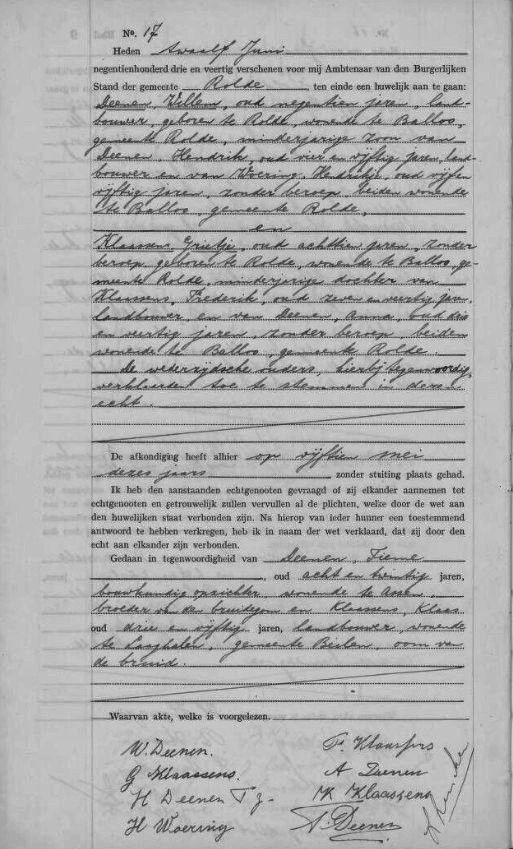 No. 17
Heden twaalf Juni
negentienhonderd drie en veertig verschenen voor mij Ambtenaar van den Burgerlijken
Stand der gemeente Rolde ten einde een huwelijk aan te gaan:
Deenen, Willem, oud negentien jaren, land-
bouwer, geboren te Rolde, wonende te Balloo,
gemeente Rolde, minderjarige zoon van
Deenen, Hendrik, oud vier en vijftig jaren, land-
bouwer en van Woering, Hendrikje, oud vijf en
vijftig jaren, zonder beroep, beiden wonende
te Balloo, gemeente Rolde,
en
Klaassens, Grietje, oud achttien jaren, zonder
beroep, geboren te Rolde, wonende te Balloo, ge-
meente Rolde, minderjarige dochter van
Klaassens, Frederik, oud zeven en veertig jaren,
landbouwer, en van Deenen, Anna, oud drie
en veertig jaren, zonder beroep, beiden
wonende te Balloo, gemeente Rolde.
De wederzijdsche ouders, hierbij tegenwoordig,
verklaarden toe te stemmen in dezen
echt.
De afkondiging heeft alhier op vijftien mei
dezes jaars zonder stuiting plaats gehad.
Ik heb den aanstaanden echtgenooten gevraagd of zij elkander aannemen tot
echtgenooten en getrouwelijk zullen vervullen al de plichten, welke door de wet aan
den huwelijken staat verbonden zijn. Na hierop van ieder hunner een toestemmend
antwoord te hebben verkregen, heb ik in naam der wet verklaard, dat zij door den
echt aan elkander zijn verbonden.
Gedaan in tegenwoordigheid van Deenen,
, oud acht en twintig jaren,
bouwkundig opzichter, wonende te Assen,
broeder van de bruidegom en Klaassens, Klaas
oud drie en vijftig jaren, landbouwer, wonende
te Laaghalen, gemeente Beilen, oom van
de bruid.
Waarvan akte, welke is voorgelezen.
W. Deenen. F. Klaassens
G Klaassens. A Deenen
H Deenen Tz. K Klaassens
H Woering Deenen